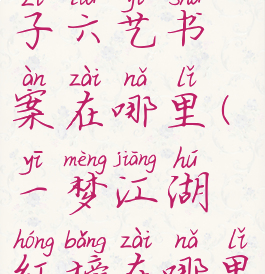 zǐ liù yì shū
子六艺书
àn zài nǎ lǐ
案在哪里(
yī mèng jiāng hú
一梦江湖
hóng bǎng zài nǎ lǐ
红榜在哪里